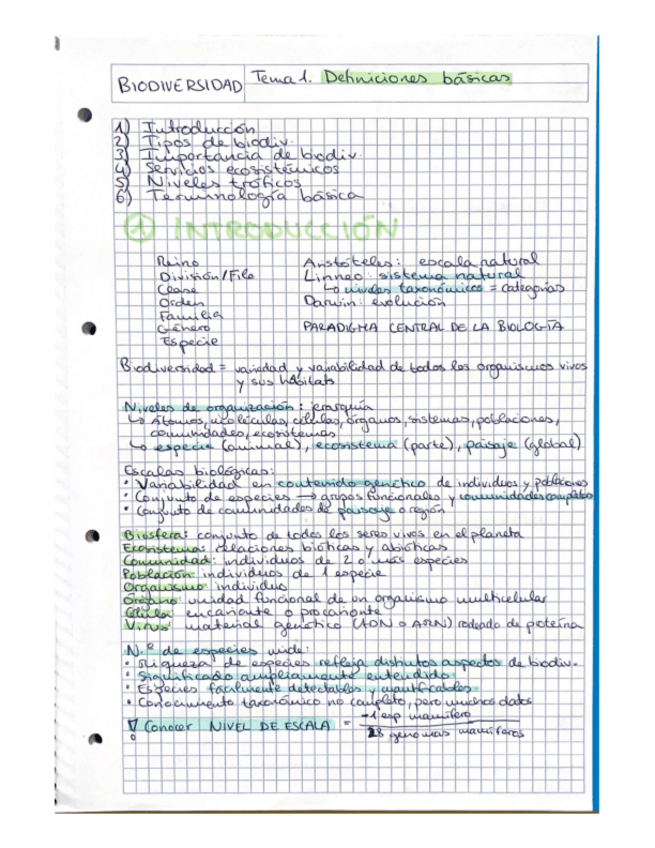 BIODIVERSIDAD
Tema 1. Definiciones básicas
1) Introducción
2) Tipos de biodiv.
3) Importancia de biodiv.
4) Servicios ecosistémicos
5) Niveles tróficos
6) Terminología básica
① INTRODUCCIÓN
Reino
División/Filo
Clase
Orden
Familia
Género
Especie
Aristóteles: escala natural
Linneo: sistema natural
↳ niveles taxonómicos = categorías
Darwin: evolución
PARADIGMA CENTRAL DE LA BIOLOGÍA
Biodiversidad = variedad y variabilidad de todos los organismos vivos
y sus hábitats
Niveles de organización: jerarquía
↳ Átomos, moléculas, células, órganos, sistemas, poblaciones,
comunidades, ecosistemas
↳ especie (animal), ecosistema (parte), paisaje (global)
Escalas biológicas:
• Variabilidad en contenido genético de individuos y poblaciones
• Conjunto de especies → grupos funcionales y comunidades completas
• Conjunto de comunidades de paisaje o región
Biosfera: conjunto de todos los seres vivos en el planeta
Ecosistema: relaciones bióticas y abióticas
Comunidad: individuos de 2 o más especies
Población: individuos de 1 especie
Organismo: individuo
Órgano: unidad funcional de en organismo multicelular
Célula: eucarionte o procarionte
Virus: material genético (ADN o ARN) rodeado de proteína
N.º de especies mide:
• Riqueza de especies refleja distintos aspectos de biodiv.
• Significado ampliamente entendido
• Especies facilmente detectables y cuantificables
• Conocimiento taxonómico no completo, pero muchos datos
! Conocer NIVEL DE ESCALA = -1 esp mamífero
28 genomas mamíferos